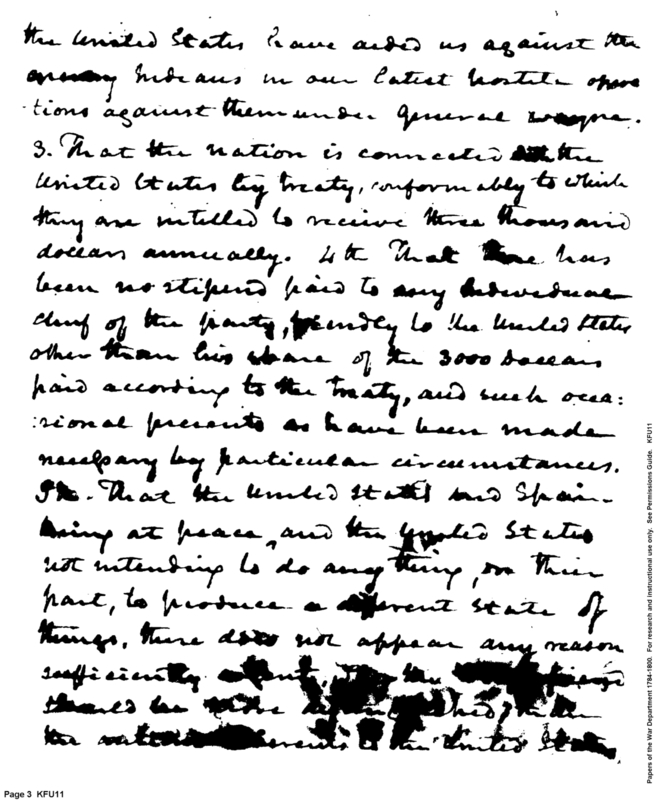 the United States have aided us against the
Indians in our latest hostile opera
tions against them under general Wayne.
3. That the nation is connected with the
United States by treaty, conformably to which
they are intitled to receive three thousand
dollars annually. 4th That there has
been no stipend paid to any Individual
chief of the party, friendly to the United States
other than his share of the 3000 Dollars
paid according to the treaty, and such occa:
:sional presents as have been made
necessary by particular circumstances.
5th. That the United States and Spain
being at peace, and the United States
not intending to do any thing, on their
part, to produce a different state of
things, there does not appear any reason
sufficiently the
should be
the the United States.
Page 3 KFU11
Papers of the War Department 1784-1800. For research and instructional use only. See Permissions Guide. KFU11